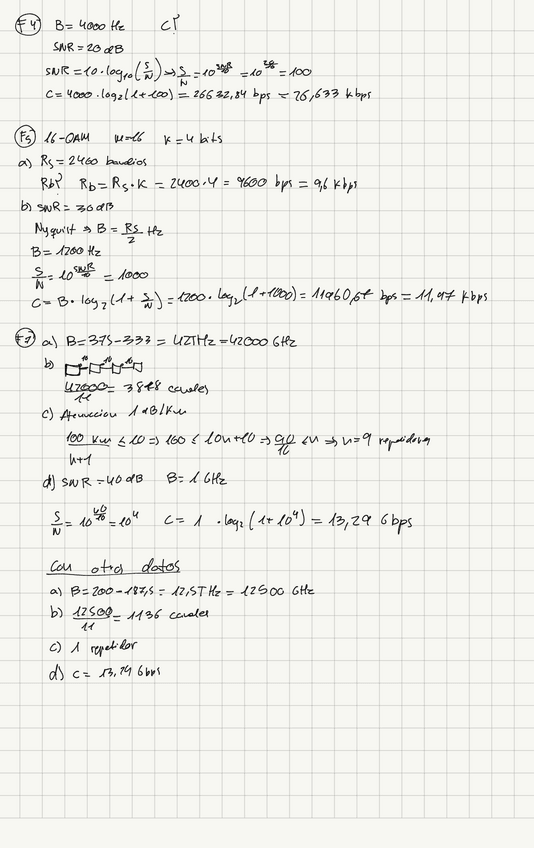 E4 B = 4000 Hz C?
SNR = 20 dB
SNR = 10·log10(S/N) => S/N = 10^(SNR/10) = 10^(20/10) = 100
C = 4000·log2(1+100) = 26632,84 bps = 26,633 kbps
E5 16-QAM M=16 K=4 bits
a) Rs = 2400 baudios
Rb? Rb = Rs·K = 2400·4 = 9600 bps = 9,6 kbps
b) SNR = 30 dB
Nyquist => B = Rs/2 Hz
B = 1200 Hz
S/N = 10^(SNR/10) = 1000
C = B·log2(1+S/N) = 1200·log2(1+1000) = 11960,67 bps = 11,97 kbps
a) B = 375-333 = 42THz = 42000 GHz
b) 10 10 10
42000/11 = 3818 canales
c) Atenuacion 1 dB/km
100 km/n+1 ≤ 10 => 100 ≤ 10n+10 => 90/10 ≤ n => n=9 repetidores
d) SNR = 40 dB B = 1 GHz
S/N = 10^(40/10) = 10^4 C = 1 · log2(1+10^4) = 13,29 Gbps
Con otros datos
a) B = 200-187,5 = 12,5THz = 12500 GHz
b) 12500/11 = 1136 canales
c) 1 repetidor
d) C = 13,29 Gbps